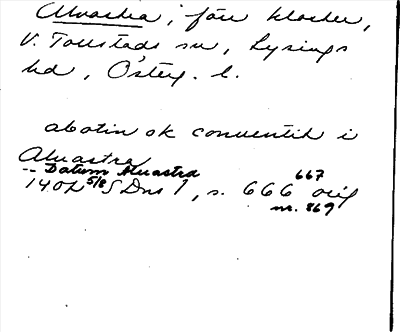 Alvastra, förr kloster,
V. Tollstads sn, Lysings
hd, Österg. l.
abotin ok conventith i
Alvastra
-- Datum Alvastra 667
1402 5/8 SDns 1, s. 666 orig
nr. 869